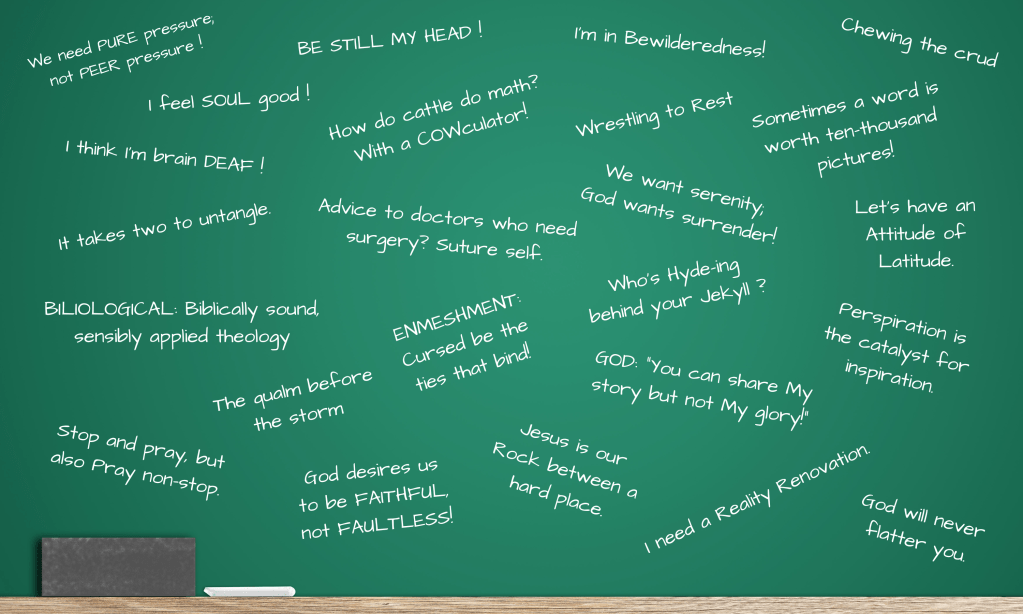 We need PURE pressure;
not PEER pressure !
BE STILL MY HEAD !
I'm in Bewilderedness!
Chewing the crud
I feel SOUL good !
How do cattle do math?
With a COWculator!
Wrestling to Rest
Sometimes a word is
worth ten-thousand
pictures!
I think I'm brain DEAF !
We want serenity;
God wants surrender!
It takes two to untangle.
Advice to doctors who need
surgery? Suture self.
Let's have an
Attitude of
Latitude.
BILIOLOGICAL: Biblically sound,
sensibly applied theology
ENMESHMENT:
Cursed be the
ties that bind!
Who's Hyde-ing
behind your Jekyll ?
Perspiration is
the catalyst for
inspiration.
The qualm before
the storm
GOD: "You can share My
story but not My glory!"
Stop and pray, but
also Pray non-stop.
God desires us
to be FAITHFUL,
not FAULTLESS!
Jesus is our
Rock between a
hard place.
I need a Reality Renovation.
God will never
flatter you.